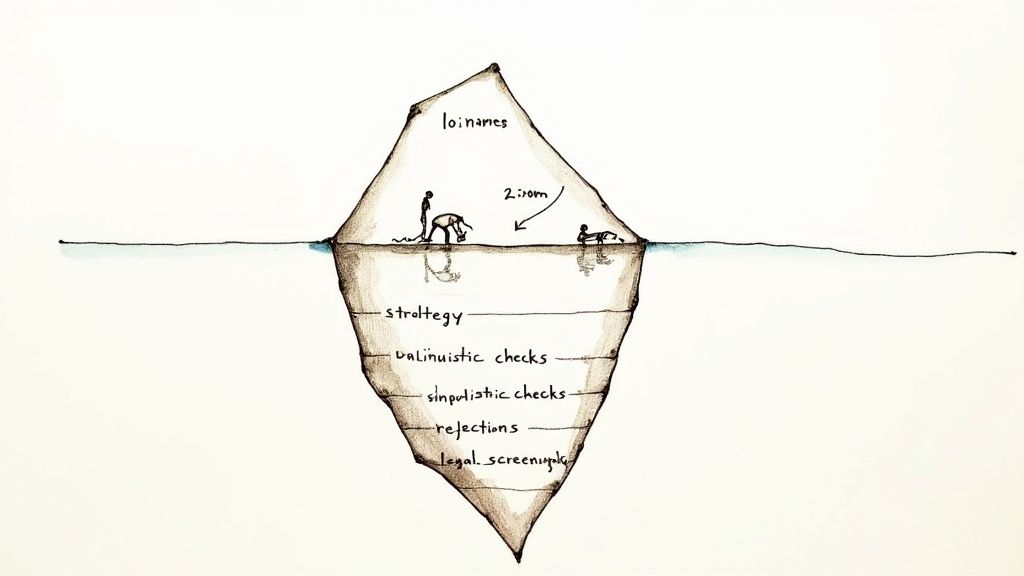 loinames
2isom
stroltegy
ualinuistic checks
sinpulistic checks
rejections
legal screening